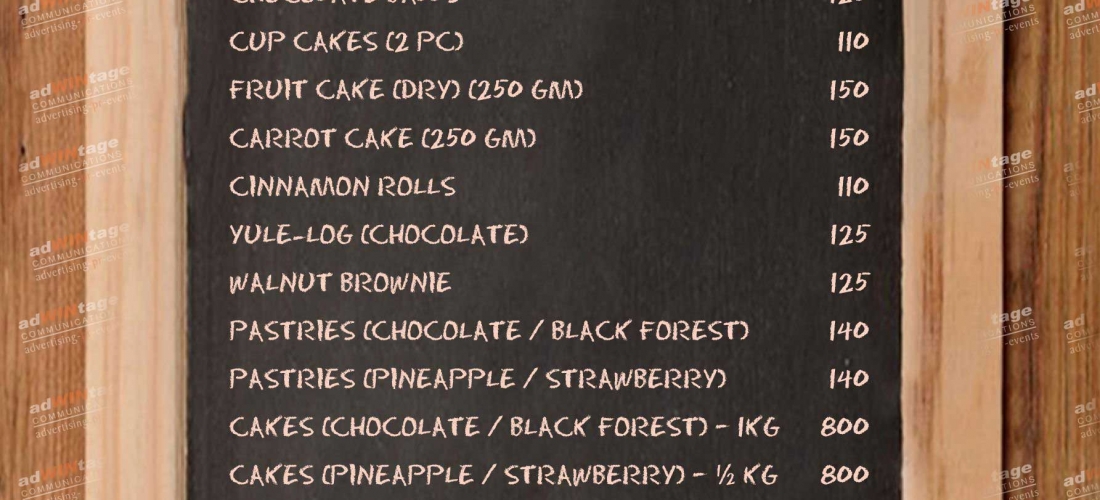 CUP CAKES (2 PC) 110
FRUIT CAKE (DRY) (250 GM) 150
CARROT CAKE (250 GM) 150
CINNAMON ROLLS 110
YULE-LOG (CHOCOLATE) 125
WALNUT BROWNIE 125
PASTRIES (CHOCOLATE / BLACK FOREST) 140
PASTRIES (PINEAPPLE / STRAWBERRY) 140
CAKES (CHOCOLATE / BLACK FOREST) - 1KG 800
CAKES (PINEAPPLE / STRAWBERRY) - ½ KG 800